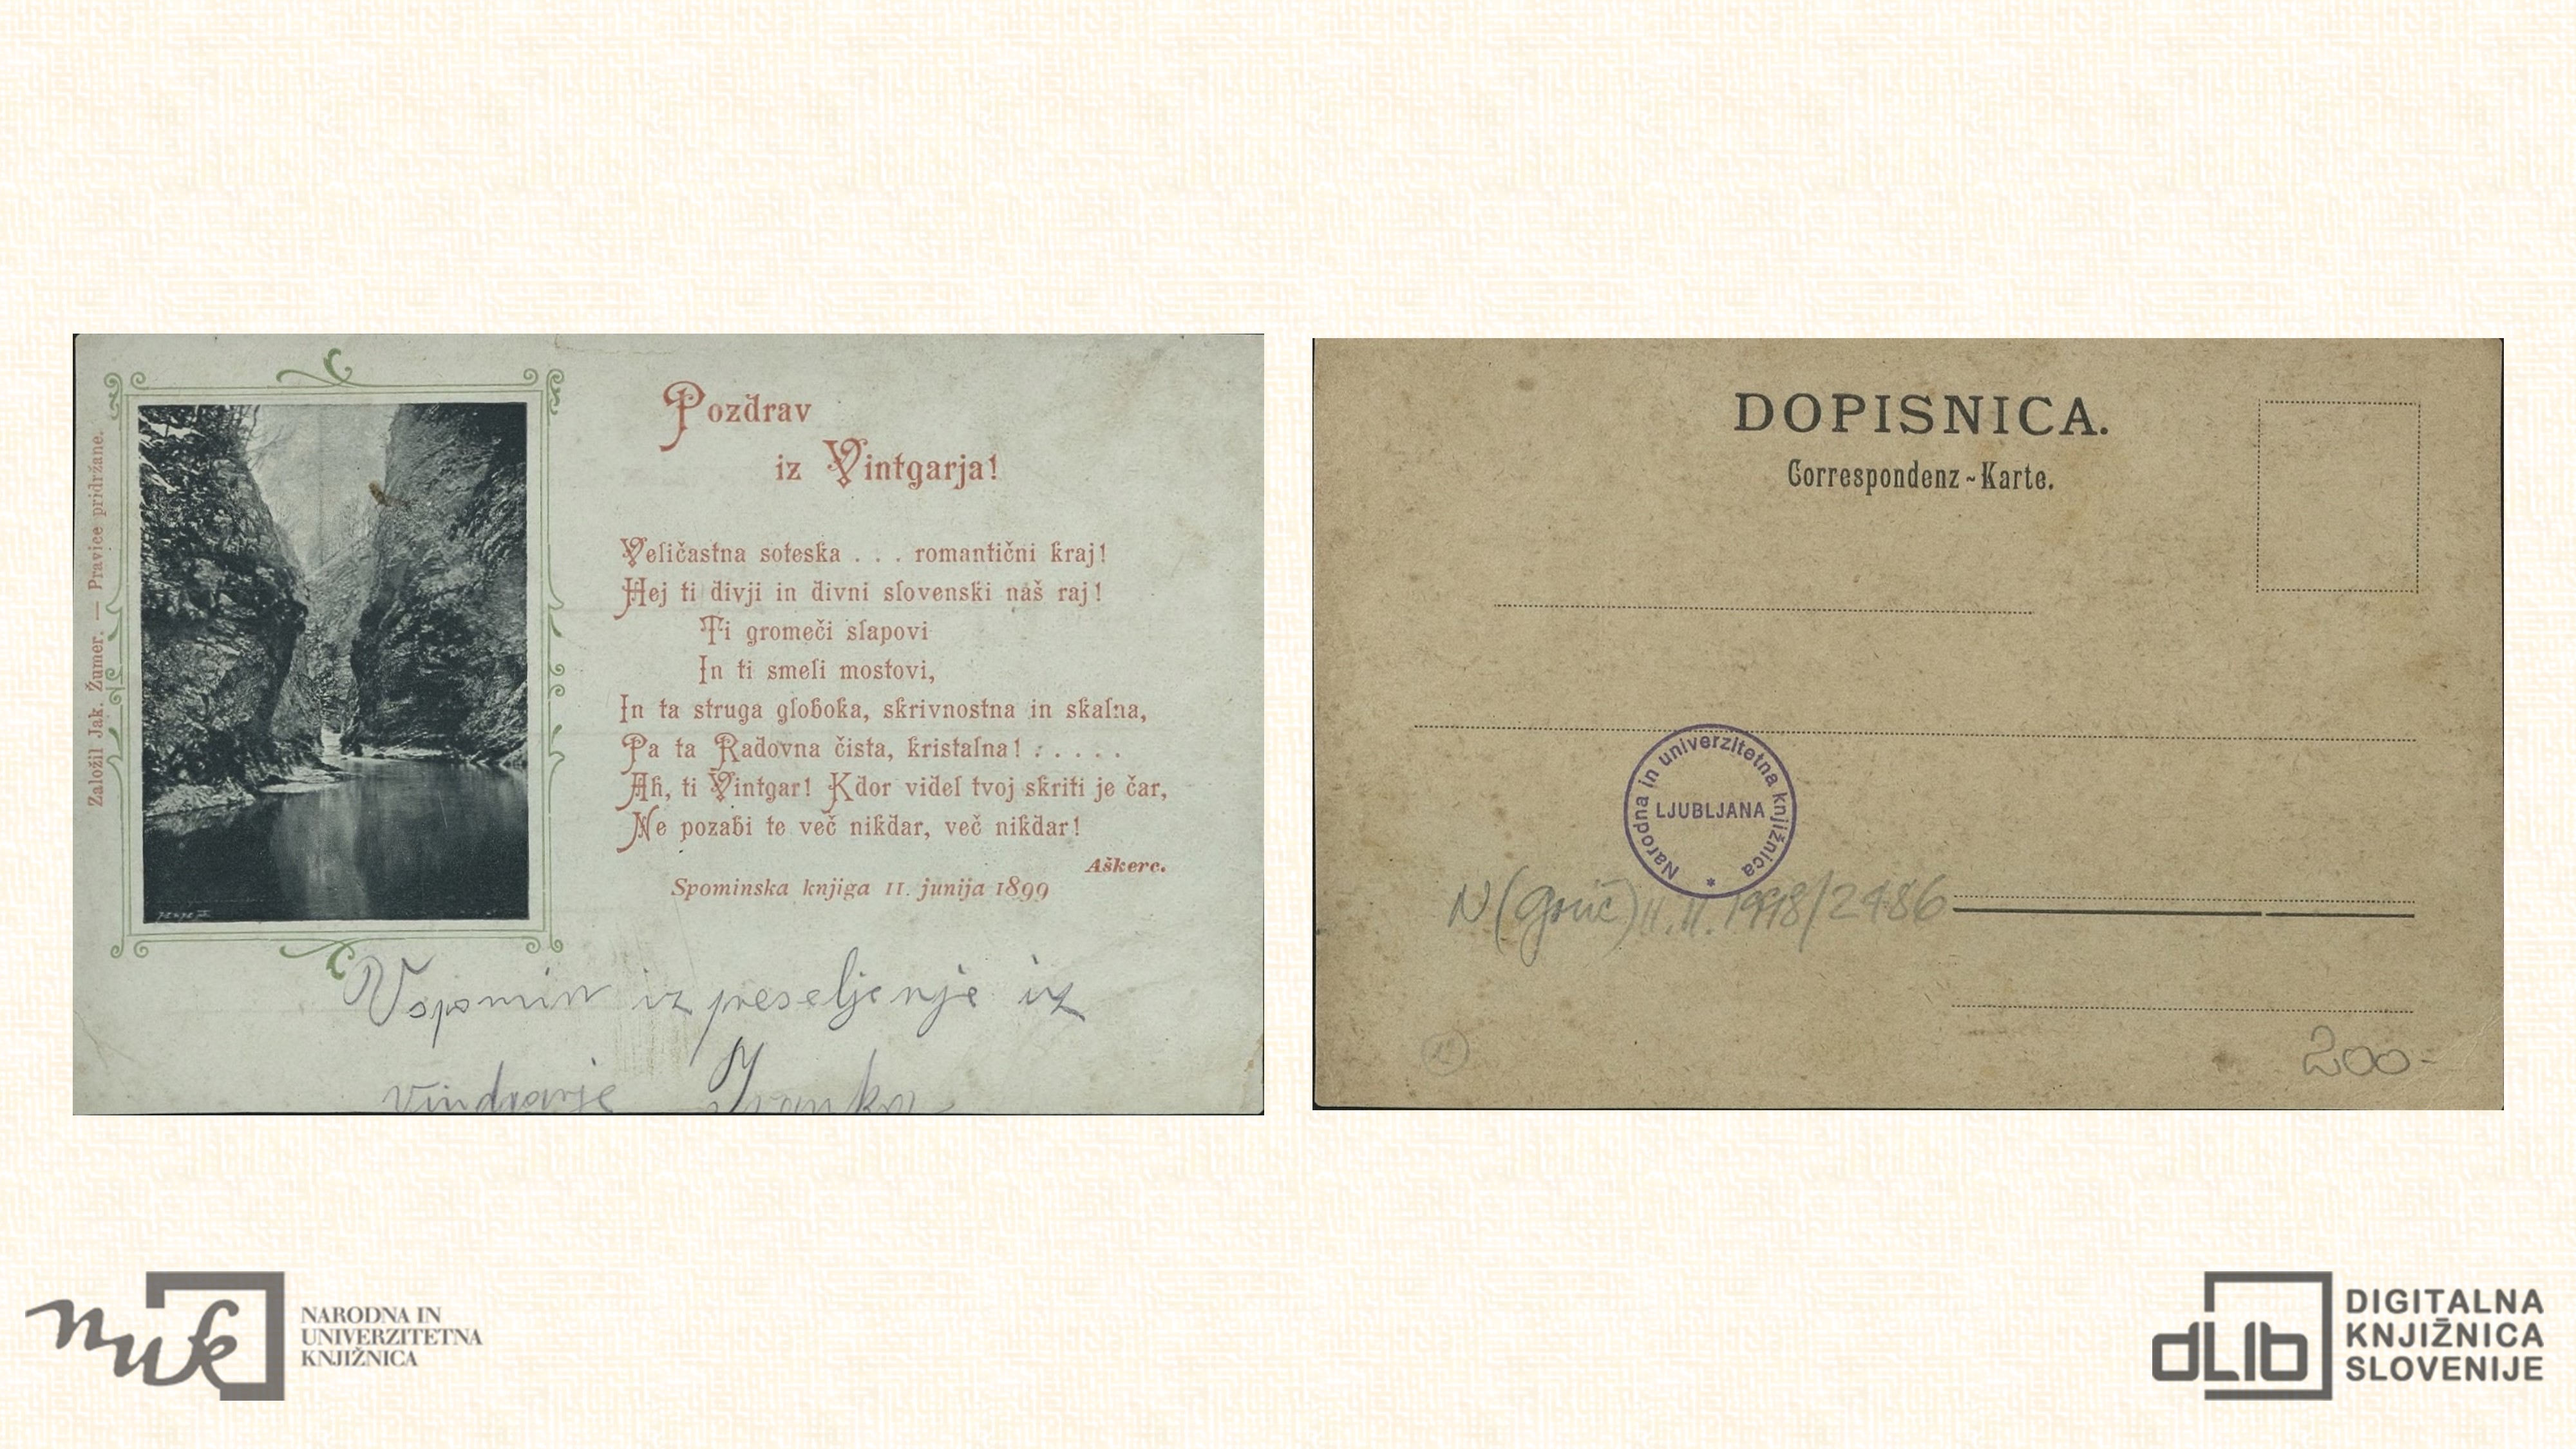 Založil Jak. Žumer. — Pravice pridržane.
Pozdrav
iz Vintgarja!
Veličastna soteska . . . romantični kraj!
Hej ti divji in divni slovenski naš raj!
Ti gromeči slapovi
In ti smeli mostovi,
In ta struga globoka, skrivnostna in skalna,
Pa ta Radovna čista, kristalna! : . . . .
Ah, ti Vintgar! Kdor videl tvoj skriti je čar,
Ne pozabi te več nikdar, več nikdar!
Aškerc.
Spominska knjiga 11. junija 1899
Vspomin iz preseljenje iz
Ivanka
DOPISNICA.
Correspondenz-Karte.
Narodna in univerzitetna knjižnica
LJUBLJANA
*
N (Grič) 11.11.1998/2486
200-
nuk
NARODNA IN
UNIVERZITETNA
KNJIŽNICA
dLib
DIGITALNA
KNJIŽNICA
SLOVENIJE